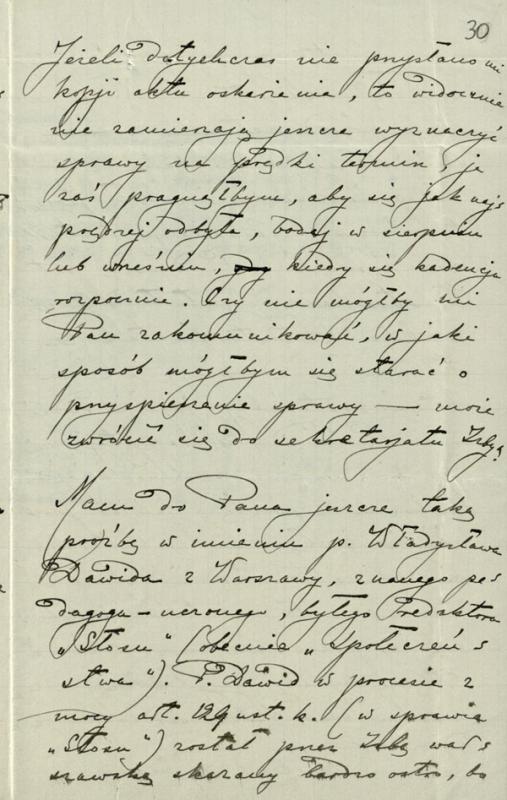 30
Jeżeli dotychczas nie przysłano mi
kopji aktu oskarżenia, to widocznie
nie zamierzają jeszcze wyznaczyć
sprawy na prędki termin, ja
zaś pragnęłbym, aby się jak naj-
prędzej odbyła, bodaj w sierpniu
lub wrześniu, kiedy się kadencja
rozpocznie. Czy nie mógłby mi
Pan zakomunikować, w jaki
sposób mógłbym się starać o
przyspieszenie sprawy — może
zwrócić się do sekretarjatu Izby?
Mam do Pana jeszcze taką
prośbę w imieniu p. Władysława
Dawida z Warszawy, znanego pe-
dagoga-uczonego, byłego Redaktora
„Głosu" (obecnie „Społeczeń-
stwa"). P. Dawid w procesie z
mocy art. 129 ust. k. (w sprawie
„Głosu") został przez Izbę war-
szawską skazany bardzo ostro, bo